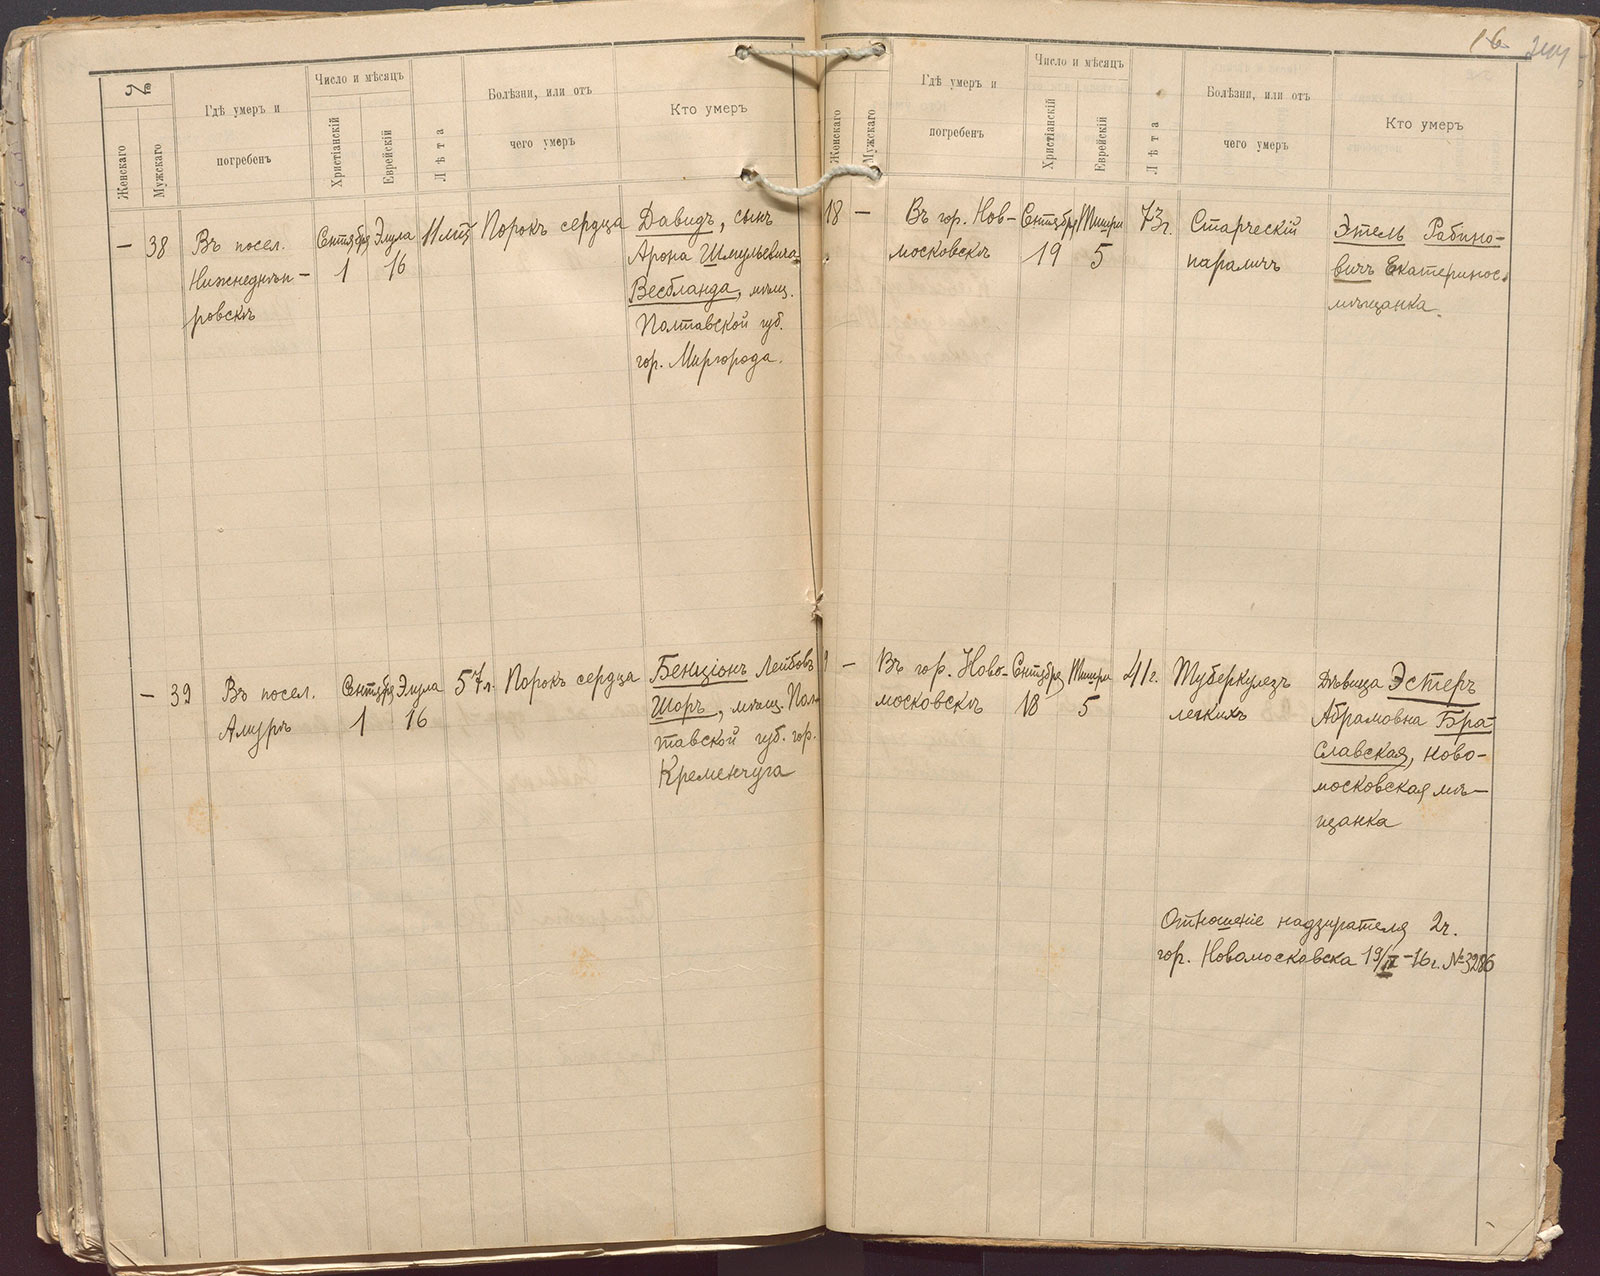 №
Женскаго
Мужскаго
Гдѣ умеръ и
погребенъ
Число и мѣсяцъ
Христіанскій
Еврейскій
Лѣта
Болѣзни, или отъ
чего умеръ
Кто умеръ
— 38
Въ посел.
Нижнеднѣп-
ровскѣ
Сентября
1
Элула
16
11 мѣс.
Порокъ сердца
Давидъ, сынъ
Арона Шмульевича
Весбланда, мѣщ.
Полтавской губ.
гор. Миргорода.
— 39
Въ посел.
Амурѣ
Сентября
1
Элула
16
57 л.
Порокъ сердца
Бенціонъ Лейбовъ
Шоръ, мѣщ. Пол-
тавской губ. гор.
Кременчуга
16
Женскаго
Мужскаго
Гдѣ умеръ и
погребенъ
Число и мѣсяцъ
Христіанскій
Еврейскій
Лѣта
Болѣзни, или отъ
чего умеръ
Кто умеръ
18 —
Въ гор. Нов-
московскѣ
Сентября
19
Тишри
5
73 г.
Старческій
параличъ
Этель Рабино-
вичъ Екатеринос.
мѣщанка.
9 —
Въ гор. Ново-
московскѣ
Сентября
18
Тишри
5
41 г.
Туберкулезъ
легкихъ
Дѣвица Эстеръ
Абрамовна Бра-
славская, ново-
московская мѣ-
щанка
Отношеніе надзирателя 2 ч.
гор. Новомосковска 19/IX -16 г. № 3286